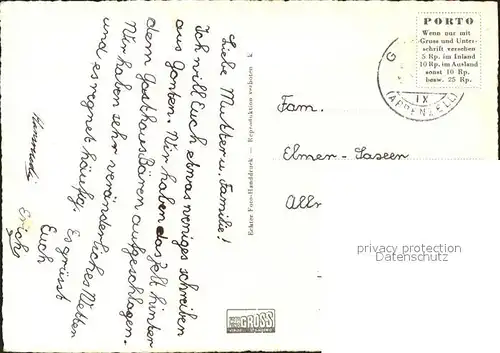 Liebe Mutter u. Familie!
Ich will Euch etwas weniges schreiben
aus Gonten. Wir haben das Zelt hinter
dem Gasthaus Bären aufgeschlagen.
Wir haben sehr veränderliches Wetter
und es regnet häufig. Es grüsst
Euch
Erich
Echter Foto-Handdruck — Reproduktion verboten
GROSS
PORTO
Wenn nur mit
Gruss und Unter-
schrift versehen
5 Rp. im Inland
10 Rp. im Ausland
sonst 10 Rp.
bezw. 25 Rp.
G
IX
(APPENZELL)
Fam.
Elmer-Saseen
privacy protection
Daten­schutz